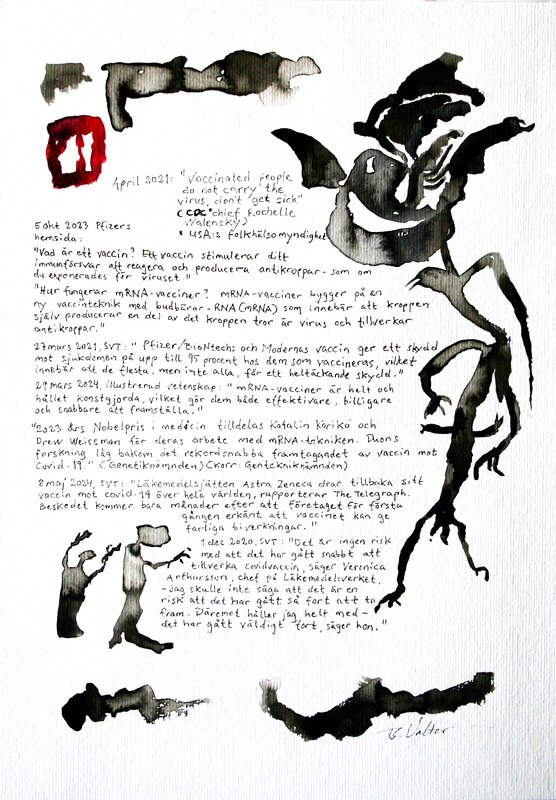 April 2021: "Vaccinated people
do not carry the
virus, don't get sick"
(CDC* chief Rochelle
Walensky)
* USA:s folkhälsomyndighet
5 okt 2023 Pfizers
hemsida:
"Vad är ett vaccin? Ett vaccin stimulerar ditt
immunförsvar att reagera och producera antikroppar - som om
du exponerades för viruset."
"Hur fungerar mRNA-vacciner? mRNA-vacciner bygger på en
ny vaccinteknik med budbärar-RNA (mRNA) som innebär att kroppen
själv producerar en del av det kroppen tror är virus och tillverkar
antikroppar."
27 mars 2021, SVT: "Pfizer/BioNtechs och Modernas vaccin ger ett skydd
mot sjukdomen på upp till 95 procent hos dem som vaccineras, vilket
innebär att de flesta, men inte alla, får ett heltäckande skydd."
29 mars 2024, Illustrerad vetenskap: "mRNA-vacciner är helt och
hållet konstgjorda, vilket gör dem både effektivare, billigare
och snabbare att framställa."
"2023 års Nobelpris i medicin tilldelas Katalin Karikó och
Drew Weissman för deras arbete med mRNA-tekniken. Duons
forskning låg bakom det rekordsnabba framtagandet av vaccin mot
Covid-19." (Genetiknämnden) (Korr: Gentekniknämnden)
8 maj 2024, SVT: "Läkemedelsjätten Astra Zeneca drar tillbaka sitt
vaccin mot covid-19 över hela världen, rapporterar The Telegraph.
Beskedet kommer bara månader efter att företaget för första
gången erkänt att vaccinet kan ge
farliga biverkningar."
1 dec 2020, SVT: "Det är ingen risk
med att det har gått snabbt att
tillverka covidvaccin, säger Veronica
Arthursson, chef på Läkemedelsverket.
- Jag skulle inte säga att det är en
risk att det har gått så fort att ta
fram. Däremot håller jag helt med -
det har gått väldigt fort, säger hon."
B. Valter